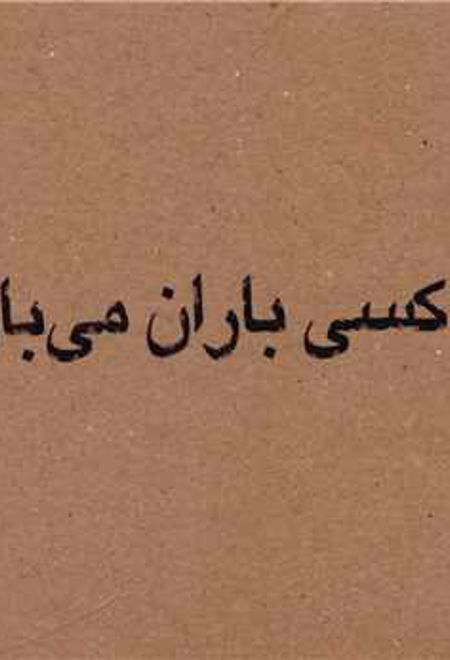 کسی باران می‌با